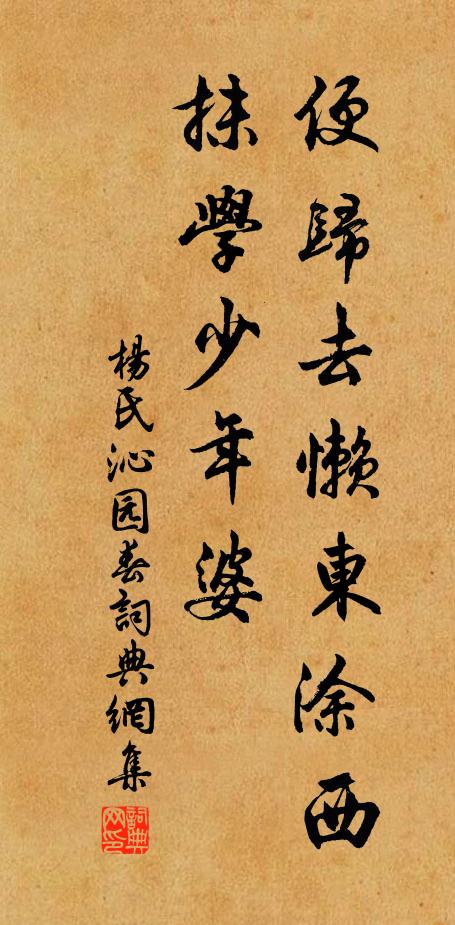 便歸去懶東涂西
抹學少年婆
楊氏沁园春詞典網集
詞典网印